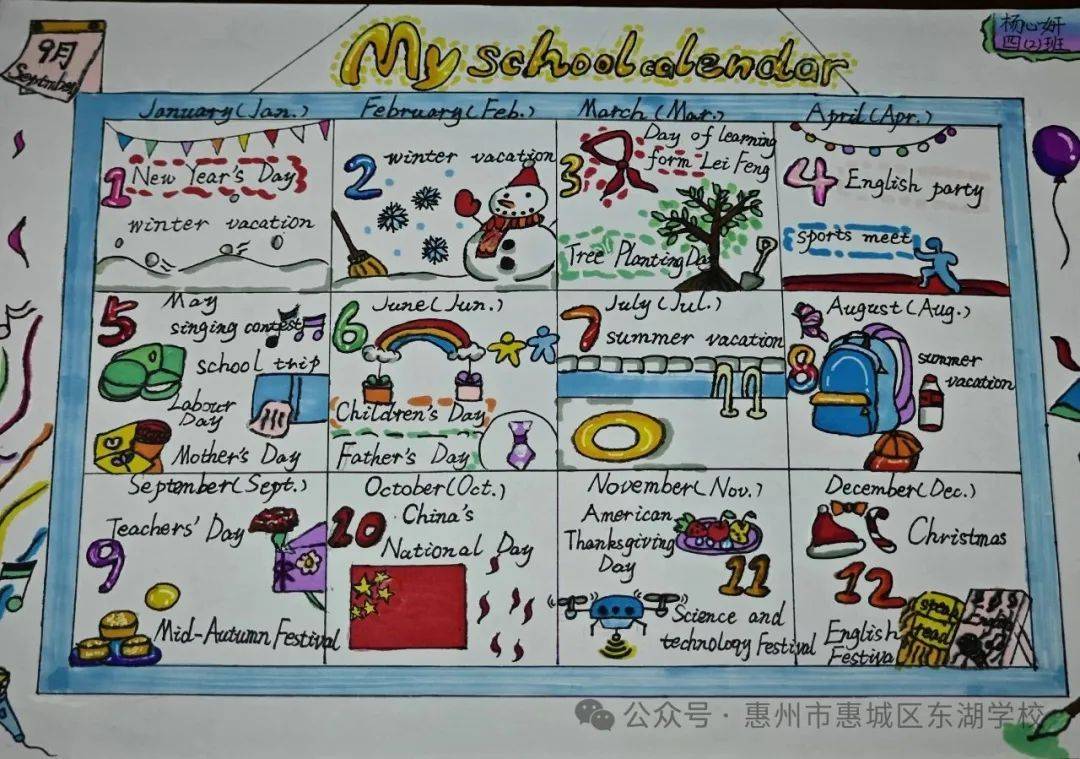 9月
September
My school calendar
杨心妍
四(2)班
January(Jan.)
1
New Year's Day
winter vacation
February(Feb.)
2
winter vacation
March(Mar.)
3
Day of learning
form Lei Feng
Tree Planting Da
April(Apr.)
4
English party
sports meet
May
5
singing contest
school trip
Labour
Day
Mother's Day
June(Jun.)
6
Children's Day
Father's Day
July(Jul.)
7
summer vacation
August(Aug.)
8
summer
vacation
September(Sept.)
Teachers' Day
9
Mid-Autumn Festival
October(Oct.)
10
China's
National Day
November(Nov.)
American
Thanksgiving
Day
11
Science and
technology Festival
December(Dec.)
Christmas
12
English
Festival
speak
read
English
公众号·惠州市惠城区东湖学校